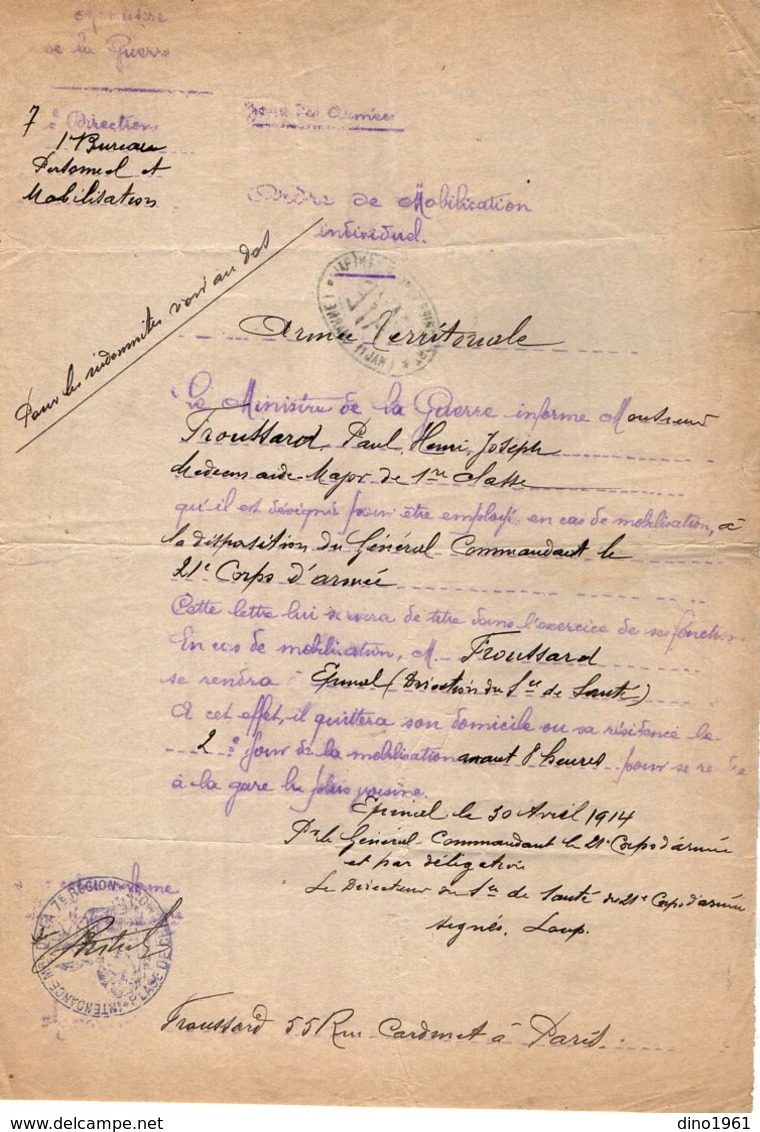 Ministère
de la Guerre
7e Direction
1er Bureau
Personnel et
Mobilisation
Zone des Armées
Ordre de Mobilisation
individuel.
Pour les indemnités voir au dos
Armée Territoriale
Le Ministre de la Guerre informe Monsieur
Troussard, Paul, Henri, Joseph
Médecin aide-Major de 1re Classe
qu'il est désigné pour être employé, en cas de mobilisation, à
la disposition du Général Commandant le
21e Corps d'armée
Cette lettre lui servira de titre dans l'exercice de ses fonctions
En cas de mobilisation, M. Troussard
se rendra à Epinal (Direction du Sce de Santé)
A cet effet, il quittera son domicile ou sa résidence le
2e jour de la mobilisation avant 8 heures pour se rendre
à la gare la plus voisine.
Epinal le 30 Avril 1914
Pr le Général Commandant le 21e Corps d'armée
et par délégation
Le Directeur du Sce de Santé du 21e Corps d'armée
signé, Loup.
INTENDANCE MRE 7E REGION PLACE DE
Troussard 55 Rue Cardinet à Paris.
dino1961